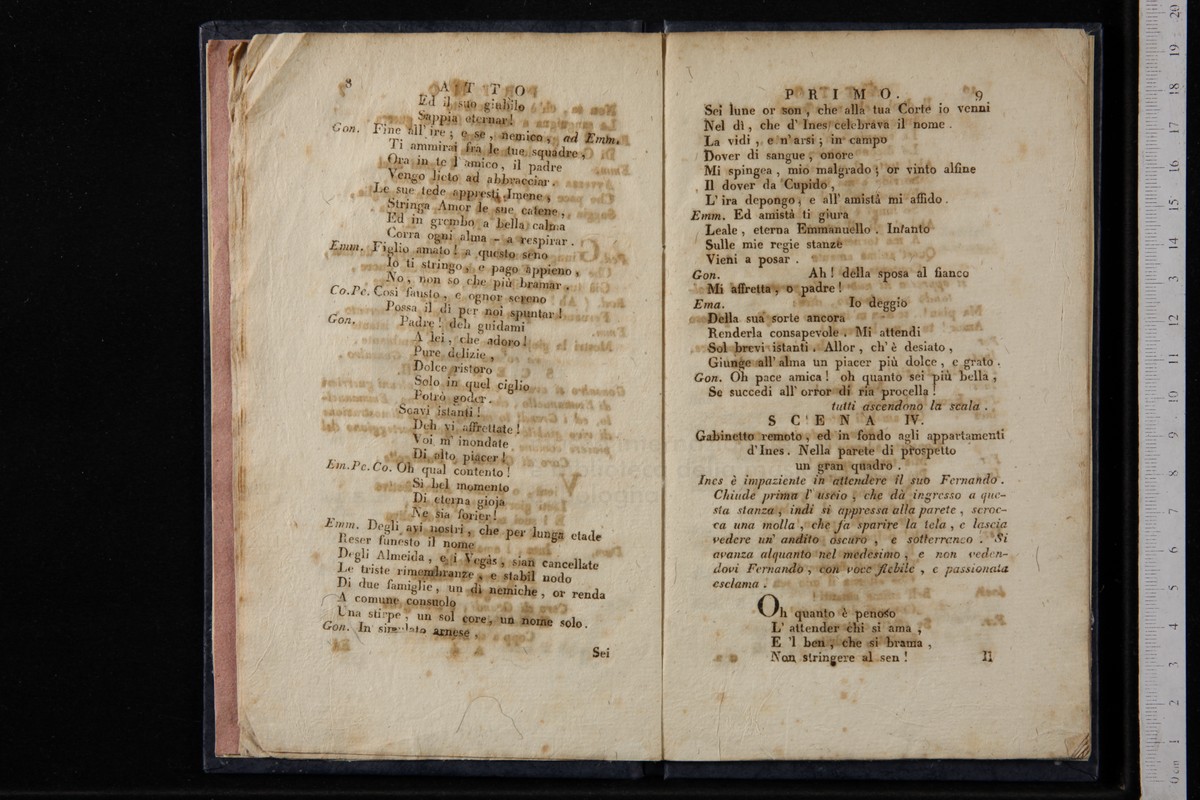 8
ATTO
Ed il suo giubilo
Sappia eternar!
Gon. Fine all' ire; e se, nemico, ad Emm.
Ti ammirai fra le tue squadre,
Ora in te l'amico, il padre
Vengo lieto ad abbracciar.
Le sue tede appresti Imene,
Stringa Amor le sue catene,
Ed in grembo a bella calma
Corra ogni alma - a respirar.
Emm. Figlio amato! a questo seno
Io ti stringo, e pago appieno,
No, non so che più bramar.
Co.Pe. Così fausto, e ognor sereno
Possa il dì per noi spuntar!
Gon. Padre! deh guidami
A lei, che adoro!
Pure delizie,
Dolce ristoro
Solo in quel ciglio
Potrò goder.
Soavi istanti!
Deh vi affrettate!
Voi m' inondate
Di alto piacer!
Em.Pe.Co. Oh qual contento!
Si bel momento
Di eterna gioja
Ne sia forier!
Emm. Degli avi nostri, che per lunga etade
Reser funesto il nome
Degli Almeida, e i Vegas, sian cancellate
Le triste rimembranze, e stabil nodo
Di due famiglie, un dì nemiche, or renda
A comune consuolo
Una stirpe, un sol core, un nome solo.
Gon. In simulato arnese,
Sei
PRIMO. 9
Sei lune or son, che alla tua Corte io venni
Nel dì, che d' Ines celebrava il nome.
La vidi, e n' arsi; in campo
Dover di sangue, onore
Mi spingea, mio malgrado; or vinto alfine
Il dover da Cupido,
L' ira depongo, e all' amistà mi affido.
Emm. Ed amistà ti giura
Leale, eterna Emmanuello. Intanto
Sulle mie regie stanze
Vieni a posar.
Gon. Ah! della sposa al fianco
Mi affretta, o padre!
Ema. Io deggio
Della sua sorte ancora
Renderla consapevole. Mi attendi
Sol brevi istanti. Allor, ch' è desiato,
Giunge all' alma un piacer più dolce, e grato.
Gon. Oh pace amica! oh quanto sei più bella,
Se succedi all' orror di ria procella!
tutti ascendono la scala.
SCENA IV.
Gabinetto remoto, ed in fondo agli appartamenti
d'Ines. Nella parete di prospetto
un gran quadro.
Ines è impaziente in attendere il suo Fernando.
Chiude prima l' uscio, che dà ingresso a que-
sta stanza, indi si appressa alla parete, scroc-
ca una molla, che fa sparire la tela, e lascia
vedere un' andito oscuro, e sotterraneo. Si
avanza alquanto nel medesimo, e non veden-
dovi Fernando, con voce flebile, e passionata
esclama.
Oh quanto è penoso
L' attender chi si ama,
E 'l ben, che si brama,
Non stringere al sen!
Il